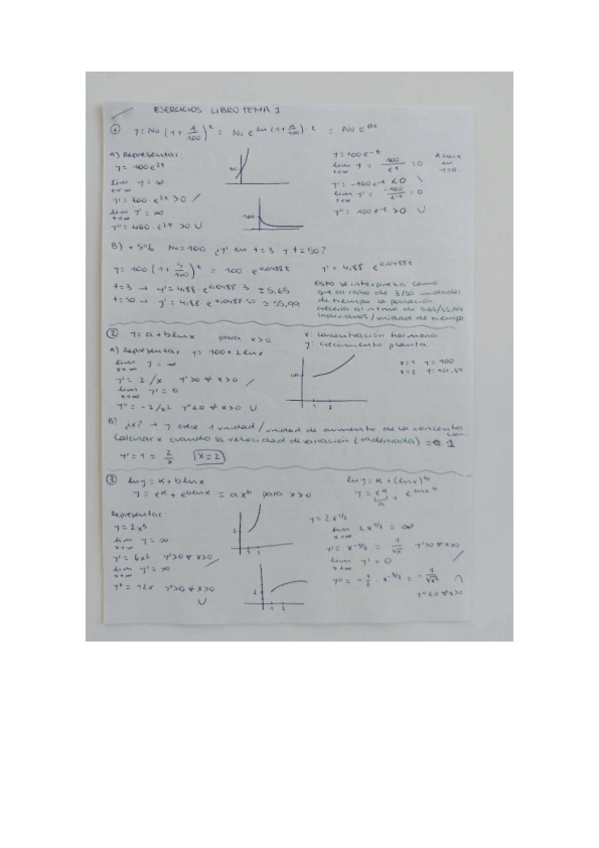 EJERCICIOS LIBRO TEMA 1
① y = N₀ (1 + r/100)^t = N₀ e^(ln(1 + r/100) · t) = N₀ e^(Rt)
A) Representar:
y = 100 e^2t
lim y = ∞
t→∞
y' = 200 · e^2t > 0 /
lim y' = ∞
t→∞
y'' = 400 · e^2t > 0 ∪
100
y = 100 e^-t
lim y = 100/e^t = 0
t→∞
y' = -100 e^-t < 0 \
lim y' = -100/e^t = 0
t→∞
y'' = 100 e^-t > 0 ∪
B) + 5% N₀ = 100 ¿y' en t = 3 y t = 50?
y = 100 (1 + 5/100)^t = 100 e^0,0488t y' = 4.88 e^0,0488t
t = 3 → y' = 4.88 · e^0,0488·3 = 5,65
t = 50 → y' = 4.88 · e^0,0488·50 = 55,99
Esto se interpreta como
que al cabo de 3/50 unidades
de tiempo la población
crecería al ritmo de 5,65/55,99
individuos/unidad de tiempo.
② y = a + b lnx para x>0
x: concentración hormona
y: crecimiento planta
A) Representar y = 100 + 2 lnx
lim y = ∞
x→∞
y' = 2/x y'>0 ∀ x>0 /
lim y' = 0
x→∞
y'' = -2/x² y''<0 ∀ x>0 ∪
100
1 2
x=1 y=100
x=2 y=101,39
B) ¿x? → y crece 1 unidad/unidad de aumento de la concentración
Calcular x cuando la velocidad de variación (1ª derivada) = 1
y' = 1 = 2/x x = 2
③ ln y = K + b lnx
y = e^K + e^b lnx = a x^b para x>0
ln y = K + (lnx)^b
Representar:
y = 2x³
lim y = ∞
x→∞
y' = 6x² y'>0 ∀ x>0 /
lim y' = ∞
x→∞
y'' = 12x y''>0 ∀ x>0
∪
2
1 2
y = 2x^1/2
lim 2x^1/2 = ∞
x→∞
y' = x^-1/2 = 1/√x y'>0 ∀ x>0
lim y' = 0 /
x→∞
y'' = -1/2 · x^-3/2 = -1/√x³ ∩
y''<0 ∀ x>0
2
1 2